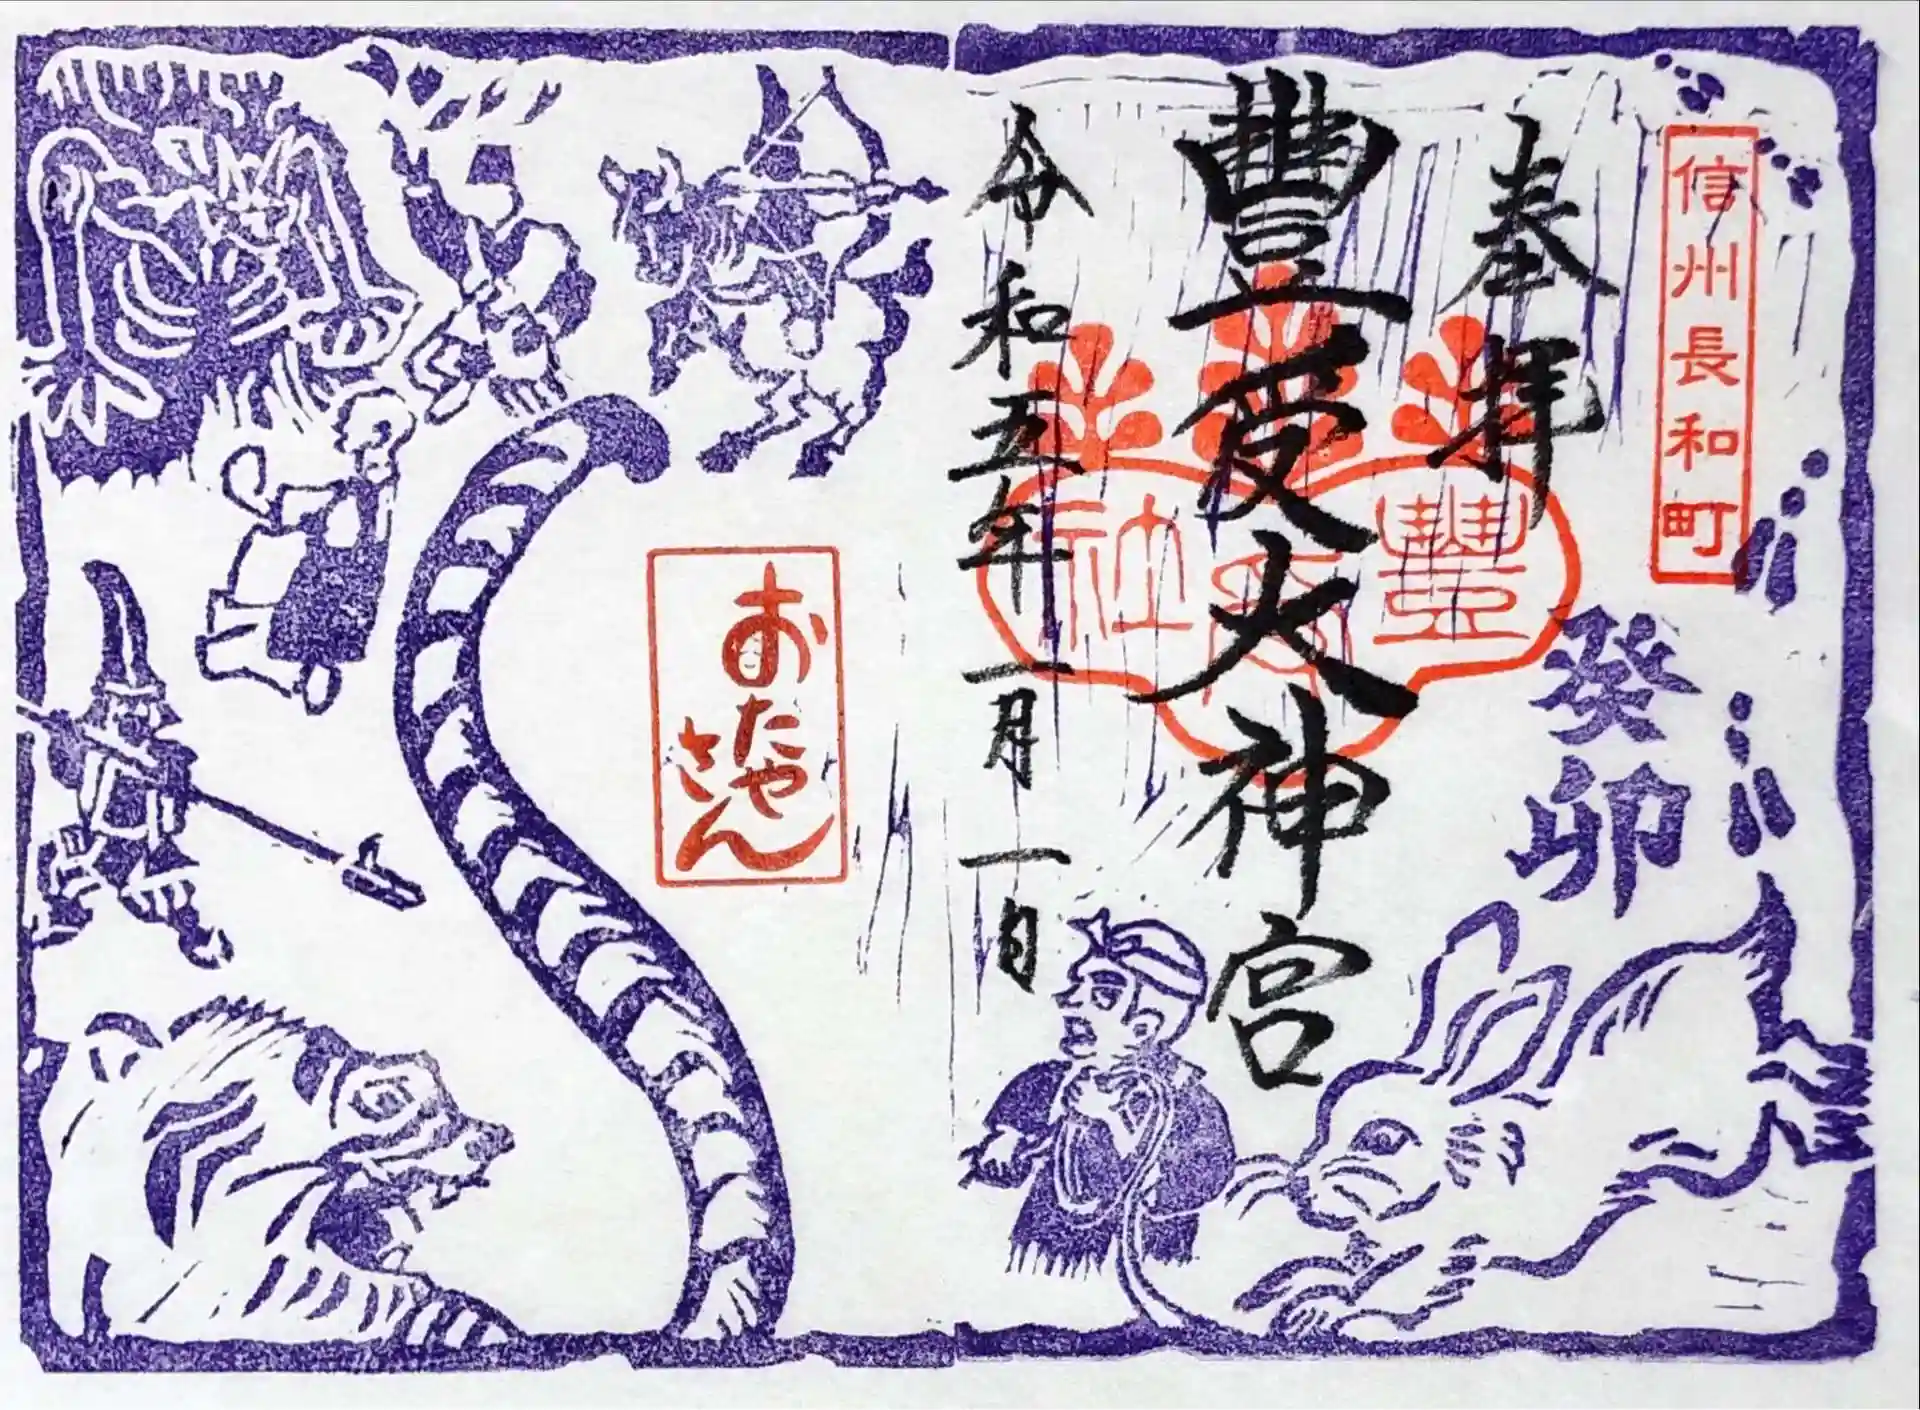 信州長和町
奉拝
癸卯
豊受大神宮
豐受社
令和五年一月一日
おたや
さん